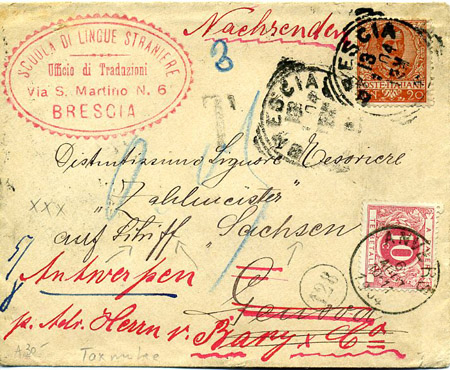 Nachsenden
3
SCUOLA DI LINGUE STRANIERE
Ufficio di Traduzioni
Via S. Martino N. 6
BRESCIA
BRESCIA
BRESCIA
POSTE ITALIANE
20
T
Distintissimo Signore Tesoriere
"Zahlmeister"
XXX
auf Schiff "Sachsen"
Antwerpen
Genova
128
10
ANVERS
1904
p. Adr. Herrn v. Bary & Co